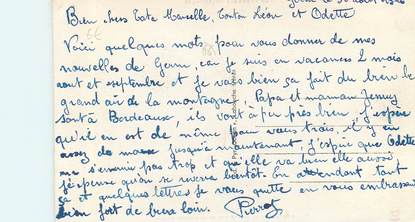 Bien chers Tata Marcelle, Tonton Léon et Odette
Voici quelques mots pour vous donner de mes
nouvelles de Germ, car je suis en vacances 2 mois
aout et septembre et je vais bien ça fait du bien le
grand air de la montagne, Papa et maman Jenny
sont à Bordeaux, ils vont à peu près bien, j'espère
qu'il en est de même pour vous trois, il y en
assez de maux jusqu'à maintenant, j'espère que Odette
ne s'ennuie pas trop et qu'elle va bien elle aussi
j'espère qu'on se reverra bientôt. En attendant tout
ça et quelques lettres je vous quitte en vous embrassant
bien fort de bien loin. Pierrot